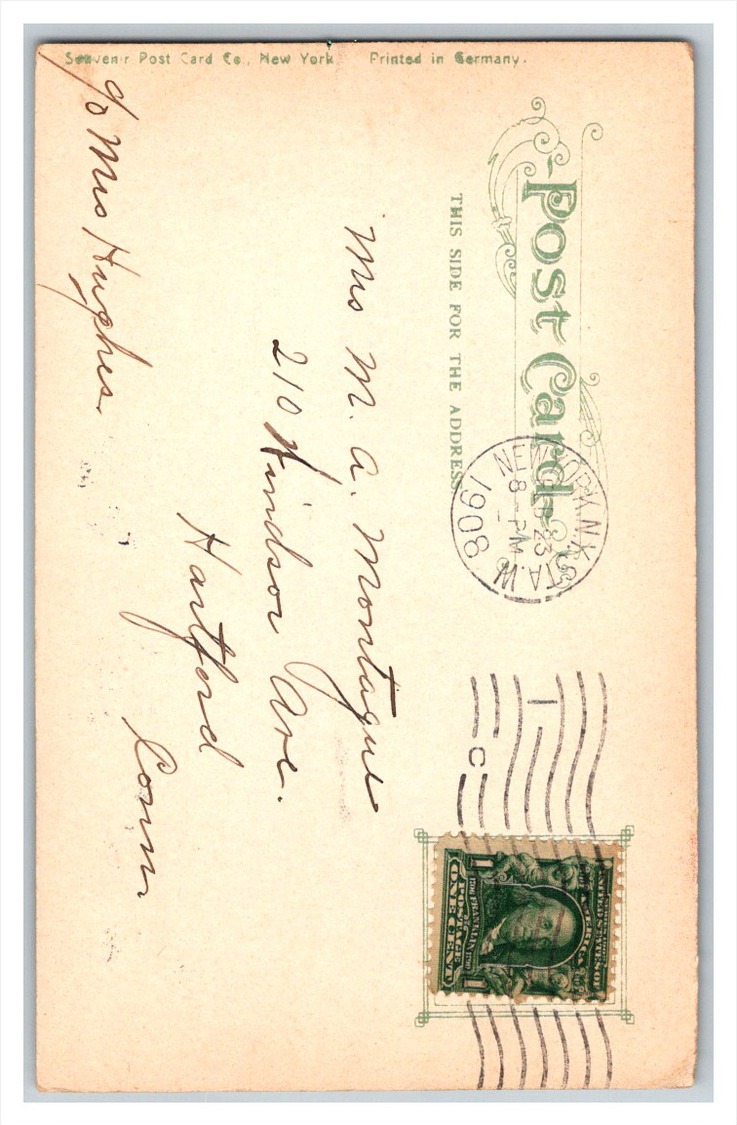 Souvenir Post Card Co., New York
Printed in Germany.
Post Card
THIS SIDE FOR THE ADDRESS
NEW YORK, N.Y. STA. W
FEB 23
8 - PM
1908
1
C
UNITED STATES OF AMERICA
1706 FRANKLIN 1790
POSTAGE
1 ONE CENT 1
Mrs M. A. Montague
210 Windsor Ave.
Hartford
Conn.
c/o Mrs Hughes.